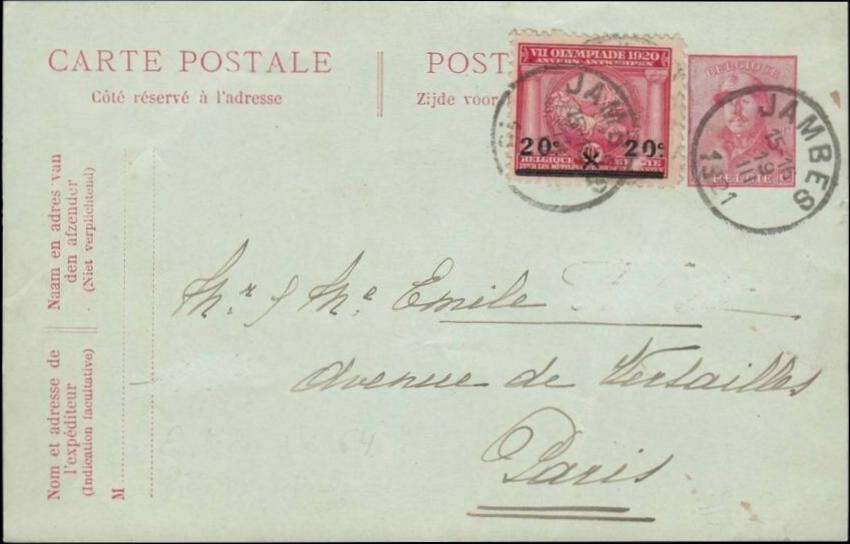 CARTE POSTALE
Côté réservé à l'adresse
POST
Zijde voor
VII OLYMPIADE 1920
ANVERS-ANTWERPEN
20c 20c
BELGIQUE BELGIË
BELGIQUE
BELGIË
JAMBES
JAMBES
15-16
19
1921
Naam en adres van
den afzender
(Niet verplichtend)
Nom et adresse de
l'expéditeur
(Indication facultative)
M
Mr & Me Emile
Avenue de Versailles
Paris